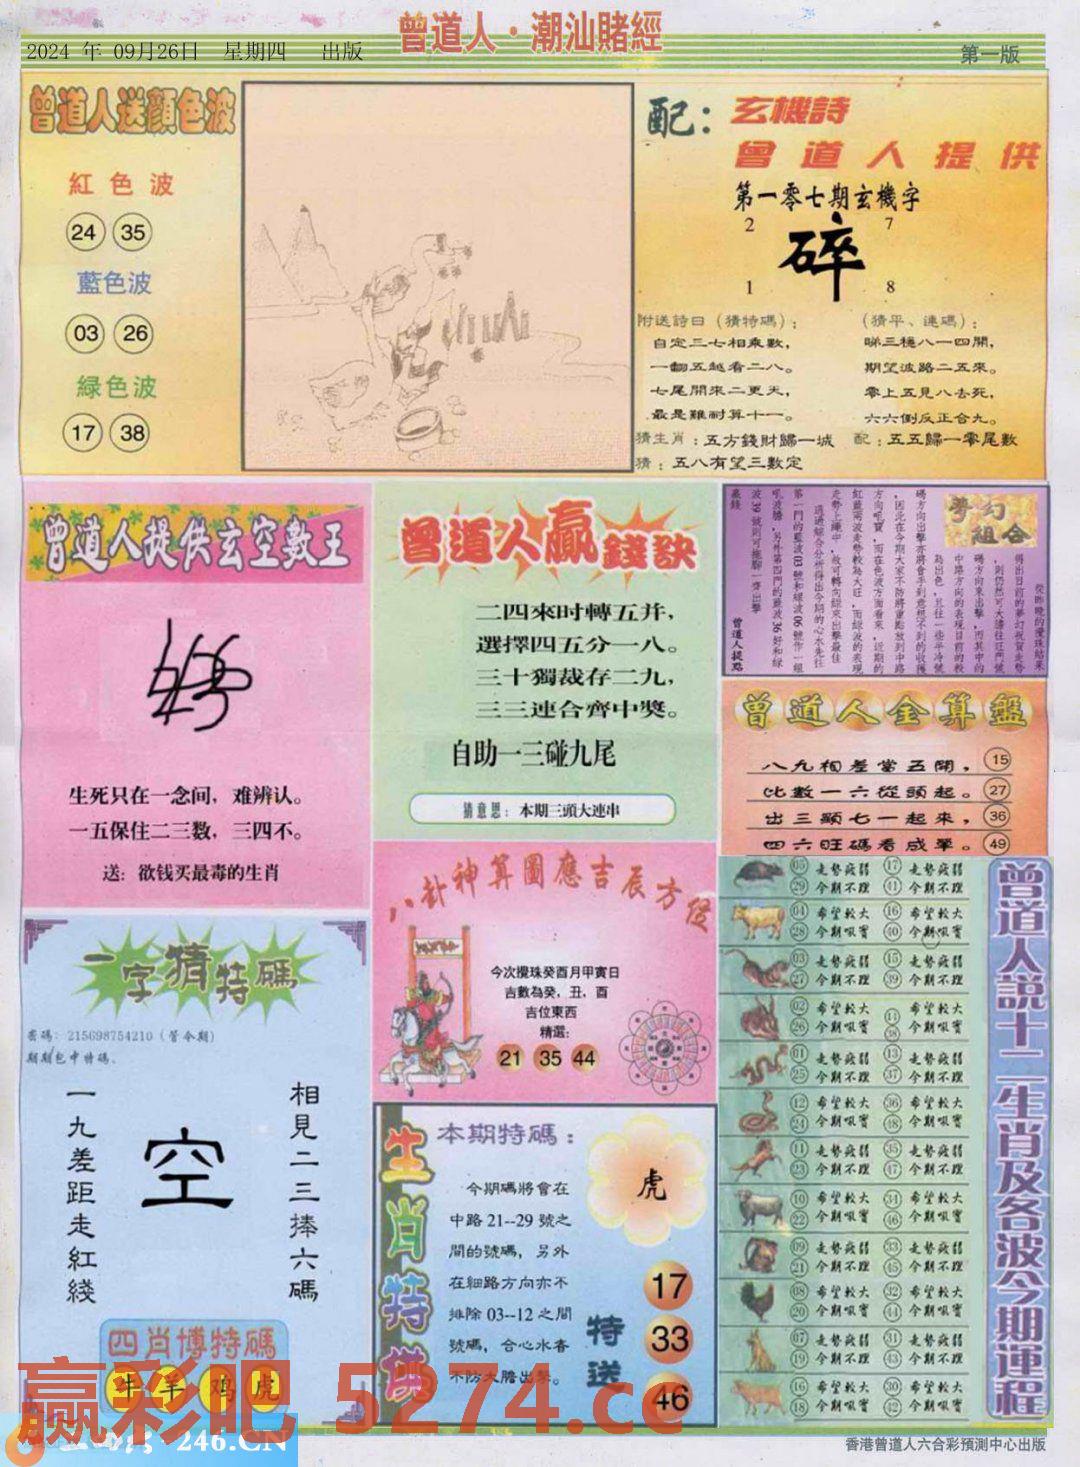 曾道人·潮汕賭經
2024 年 09月26日 星期四 出版
第一版
曾道人送顔色波
紅色波
24 35
藍色波
03 26
緑色波
17 38
配：
玄機詩
曾道人提供
第一零七期玄機字
2 7
碎
1 8
附送詩曰（猜特碼）：
自定三七相乘數，
一翻五越看二八。
七尾開來二更天，
最是難耐算十一。
（猜平、連碼）：
睇三穩八一四開，
期望波路二五來。
零上五見八去死，
六六倒反正合九。
猜生肖：五方錢財歸一城 配：五五歸一零尾數
猜：五八有望三數定
曾道人提供玄空數王
生死只在一念间，难辨认。
一五保住二三数，三四不。
送：欲钱买最毒的生肖
曾道人贏錢訣
二四來时轉五并，
選擇四五分一八。
三十獨裁存二九，
三三連合齊中獎。
自助一三碰九尾
猜意思：本期三頭大連串
夢幻組合
曾道人提點
曾道人金算盤
八九相差當五開， 15
比數一六從頭起。 27
出三顯七一起來， 36
四六旺碼看成單。 49
一字猜特碼
密碼：215698754210（管今期）
期期包中特碼。
相見二三捧六碼
空
一九差距走紅綫
四肖博特碼
牛 羊 鸡 虎
八卦神算圖應吉辰方位
今次攪珠癸酉月甲寅日
吉數為癸，丑，酉
吉位東西
精選：
21 35 44
生肖特供
本期特碼：
今期碼將會在
中路 21--29 號之
間的號碼，另外
在細路方向亦不
排除 03--12 之間
號碼，合心水者
不防大膽出擊。
虎
特送
17
33
46
曾道人説十二生肖及各波今期運程
05 29 走勢疲弱 今期不理 17 41 走勢疲弱 今期不理
04 28 希望較大 今期呗寳 16 40 希望較大 今期呗寳
03 27 走勢疲弱 今期不理 15 39 走勢疲弱 今期不理
02 26 希望較大 今期呗寳 14 38 希望較大 今期呗寳
01 25 走勢疲弱 今期不理 13 37 走勢疲弱 今期不理
12 24 希望較大 今期呗寳 36 48 希望較大 今期呗寳
11 23 走勢疲弱 今期不理 35 47 走勢疲弱 今期不理
10 22 希望較大 今期呗寳 34 46 希望較大 今期呗寳
09 21 走勢疲弱 今期不理 33 45 走勢疲弱 今期不理
08 20 希望較大 今期呗寳 32 44 希望較大 今期呗寳
07 19 走勢疲弱 今期不理 31 43 走勢疲弱 今期不理
18 希望較大 今期呗寳 30 42 希望較大 今期呗寳
赢彩吧 5274.cc
246.CN
香港曾道人六合彩預測中心出版